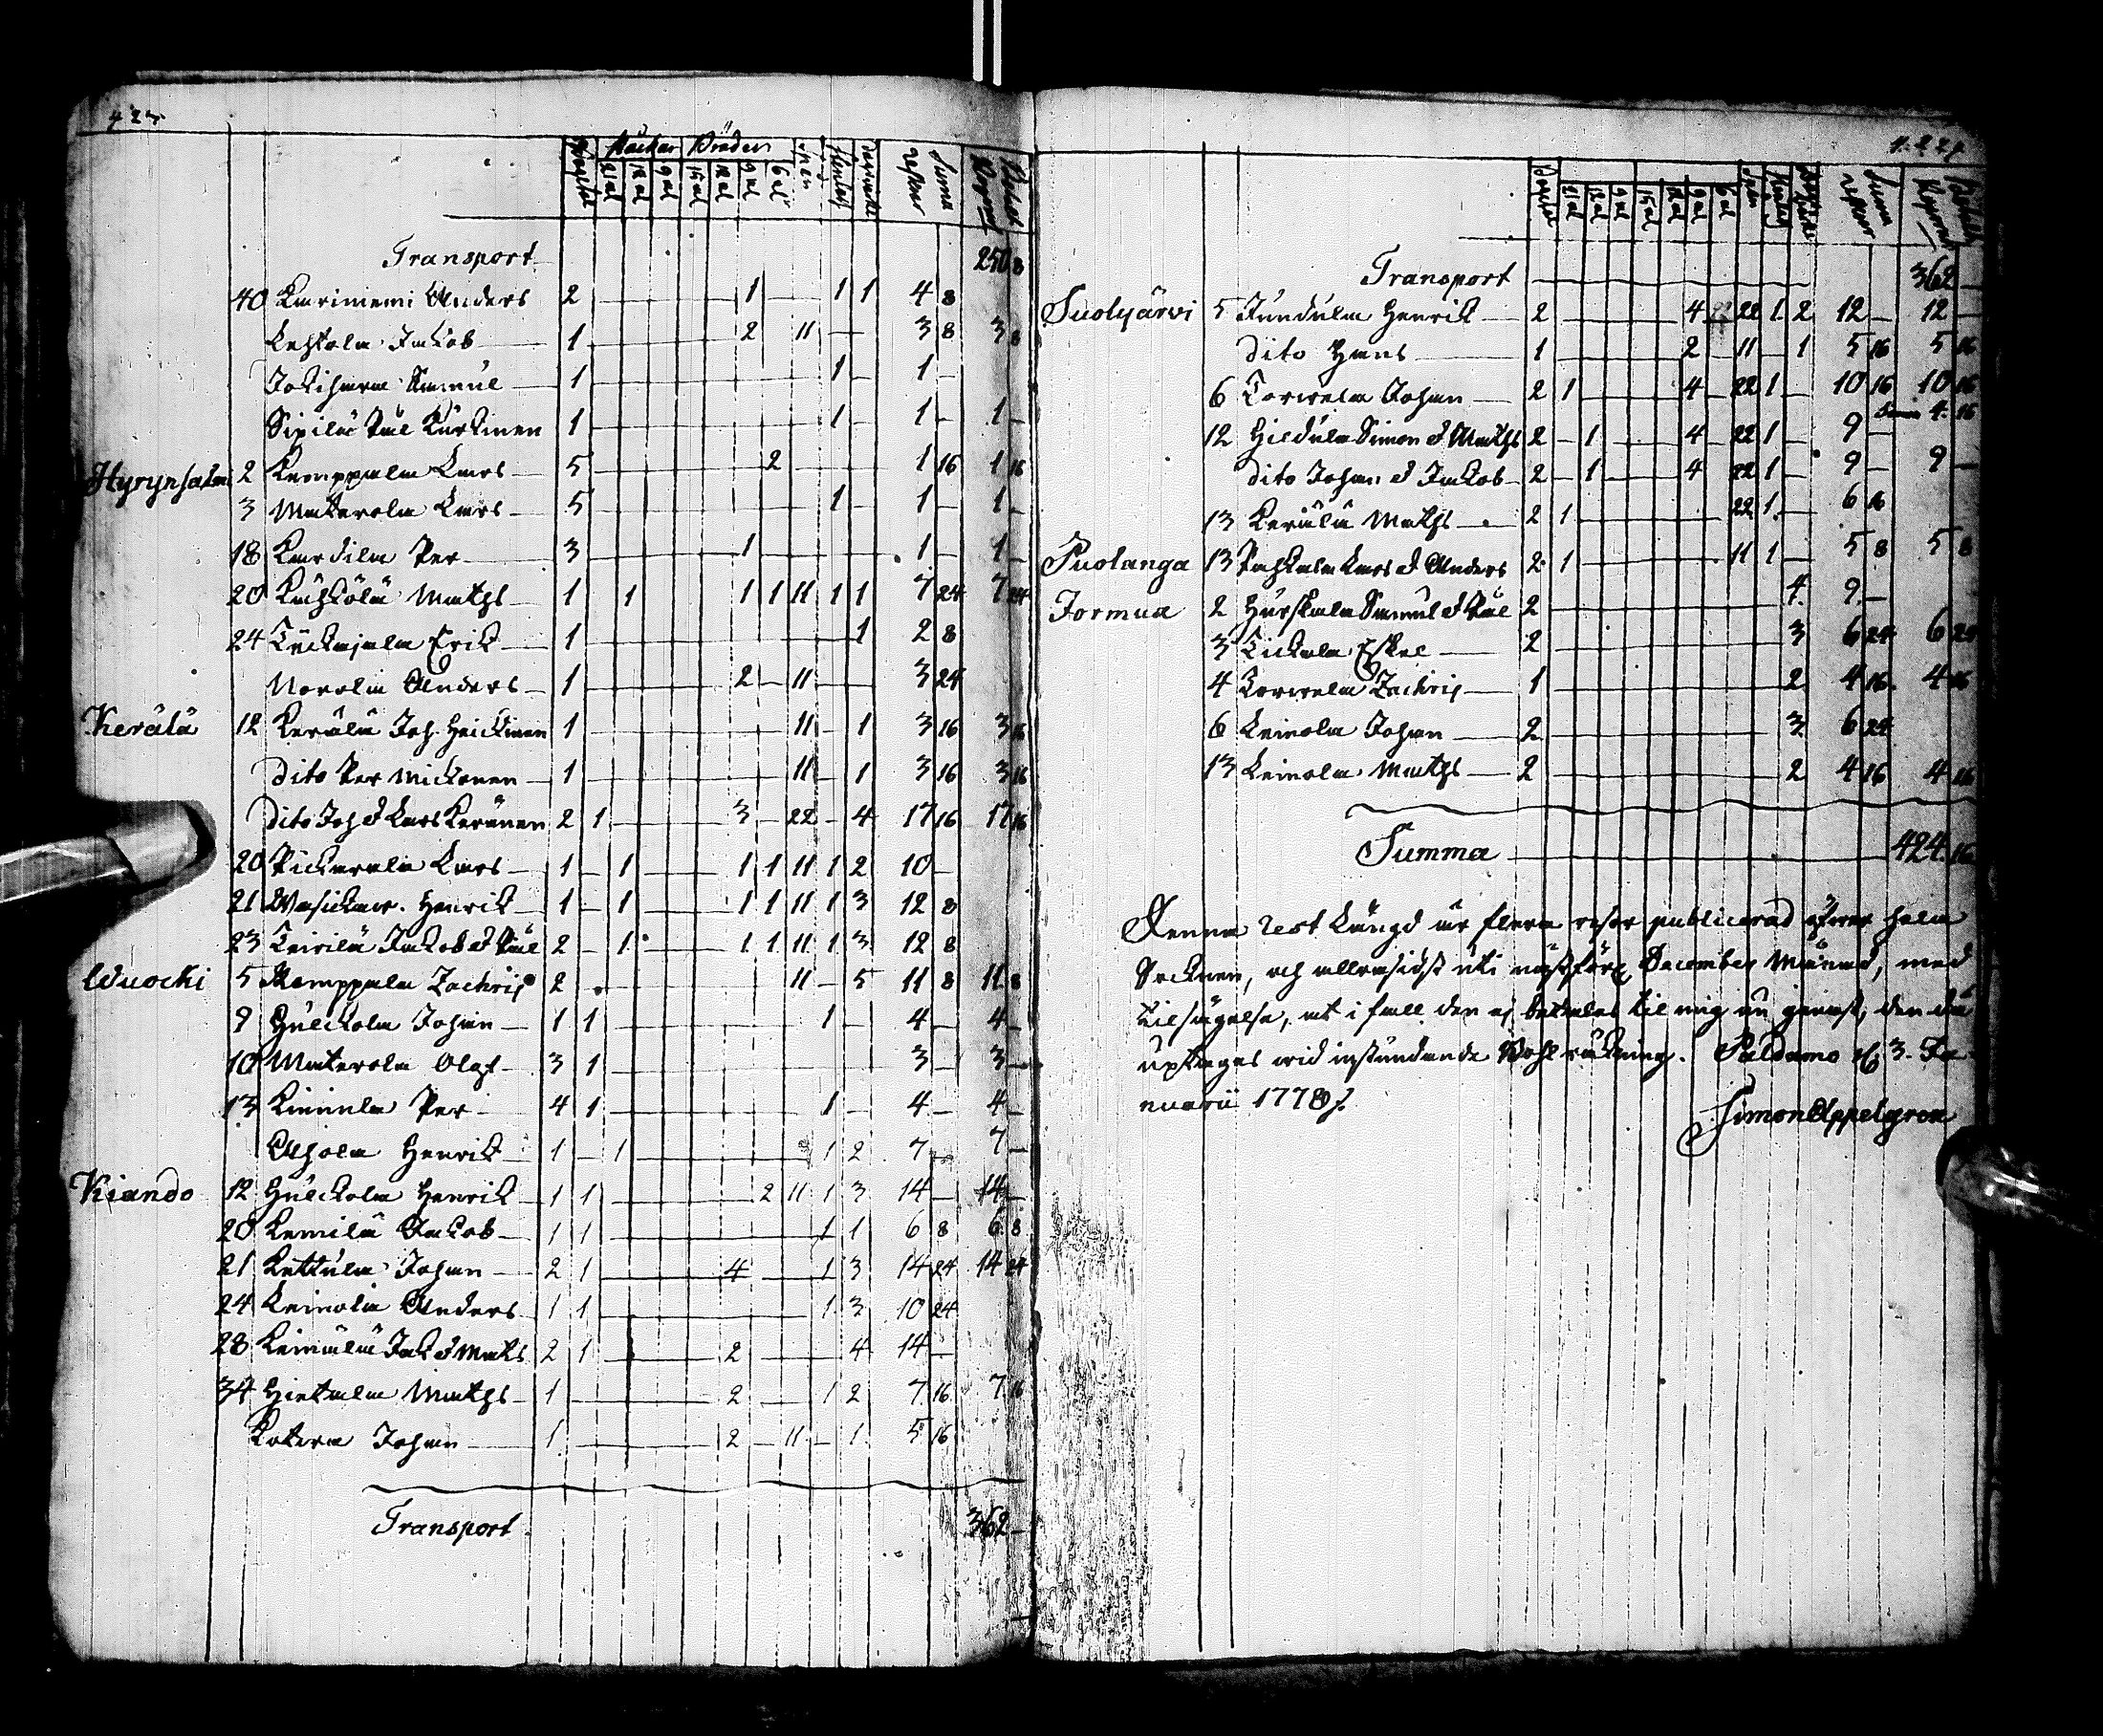 Stockar Bräder
Transport 250 8
40 Kariniemi Anders 2 1 1 1 4 8
Lehtola Jakob 1 2 11 3 8 3 8
Jokihara Samuel 1 1 1
Sipilä Påul Kurkinen 1 1 1 1
Hyrynsalmi 2 Kemppala Lars 5 2 1 16 1 16
3 Materola Lars 5 1 1 1
18 Kardila Per 3 1 1 1
20 Kähkölä Maths 1 1 1 1 11 1 1 7 24 7 24
24 Erik 1 1 2 8
Norola Anders 1 2 11 3 24
Kerälä 12 Kerälä Joh. Heickinen 1 11 1 3 16 3 16
Dito Per Mickonen 1 11 1 3 16 3 16
Dito Joh & Lars Keränen 2 1 3 22 4 17 16 17 16
20 Lars 1 1 1 1 11 1 2 10
21 Henrik 1 1 1 1 11 1 3 12 8
23 Jakob & Påul 2 1 1 1 11 1 3 12 8
Wuocki 5 Kemppala Zachris 2 11 5 11 8 11 8
9 Hulckola Johan 1 1 1 4 4
10 Materola Olof 3 1 3 3
13 Kinnula Per 4 1 1 4 4
Ahola Henrik 1 1 1 2 7 7
Kiando 12 Hulckola Henrik 1 1 2 11 1 3 14 14
20 Lemilä Jakob 1 1 1 1 6 8 6 8
21 Kettula Johan 2 1 4 1 3 14 24 14 24
24 Leinola Anders 1 1 1 3 10 24
28 Jak & Mats 2 1 2 4 14
34 Hietala Maths 1 2 1 2 7 16 7 16
Johan 1 2 11 1 5 16
Transport 362
Transport 362
Suolijärvi 5 Jundula Henrik 2 4 22 1 2 12 12
Dito Hans 1 2 11 1 5 16 5 16
6 Torwela Johan 2 1 4 22 1 10 16 10 16
12 Hildula Simon & Maths 2 1 4 22 1 9 4 16
Dito Johan & Jakob 2 1 4 22 1 9 9
13 Kerälä Maths 2 1 22 1 6 16
Puolanga 13 Pahkala Lars & Anders 2 1 11 1 5 8 5 8
Jormua 2 Hurskala Samuel & Påul 2 4 9
3 Eskel 2 3 6 24 6 24
4 Korwela Zachris 1 2 4 16 4 16
6 Leinola Johan 2 3 6 24
13 Leinola Maths 2 2 4 16 4 16
Summa 424 16
Denna rest Längd är flera resor publicerad öfwer hela
Socknen, och allrasidst uti December Månad, med
tilsägelse, at i fall den ej betalas til mig nu genast, den då
uptages wid instundande Paldamo 3. Ja-
nuarii 1778.
Simon Appelgren